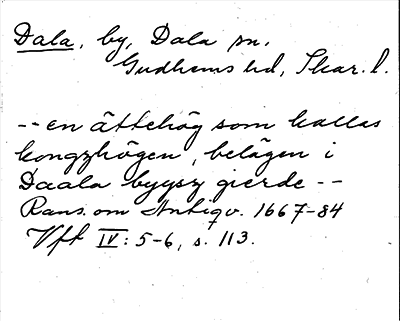 Dala, by, Dala sn.
Gudhems hd, Skar. l.
-- en ättehög som kallas
kongzhögen, belägen i
Daala byysz gierde --
Rans. om Antiqv. 1667-84
Vft IV: 5-6, s. 113.